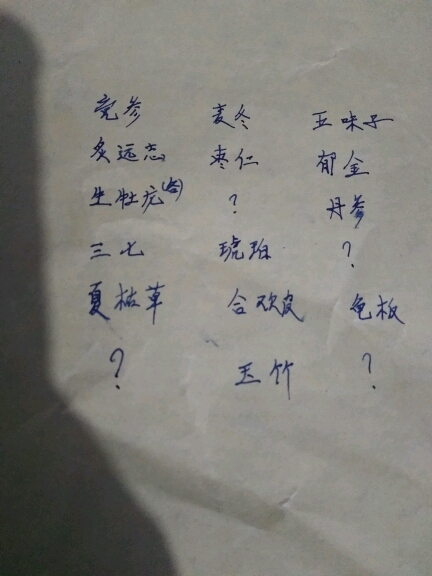 党参 麦冬 五味子
炙远志 枣仁 郁金
生牡疠 ? 丹参
三七 琥珀 ?
夏枯草 合欢皮 龟板
? 玉竹 ?